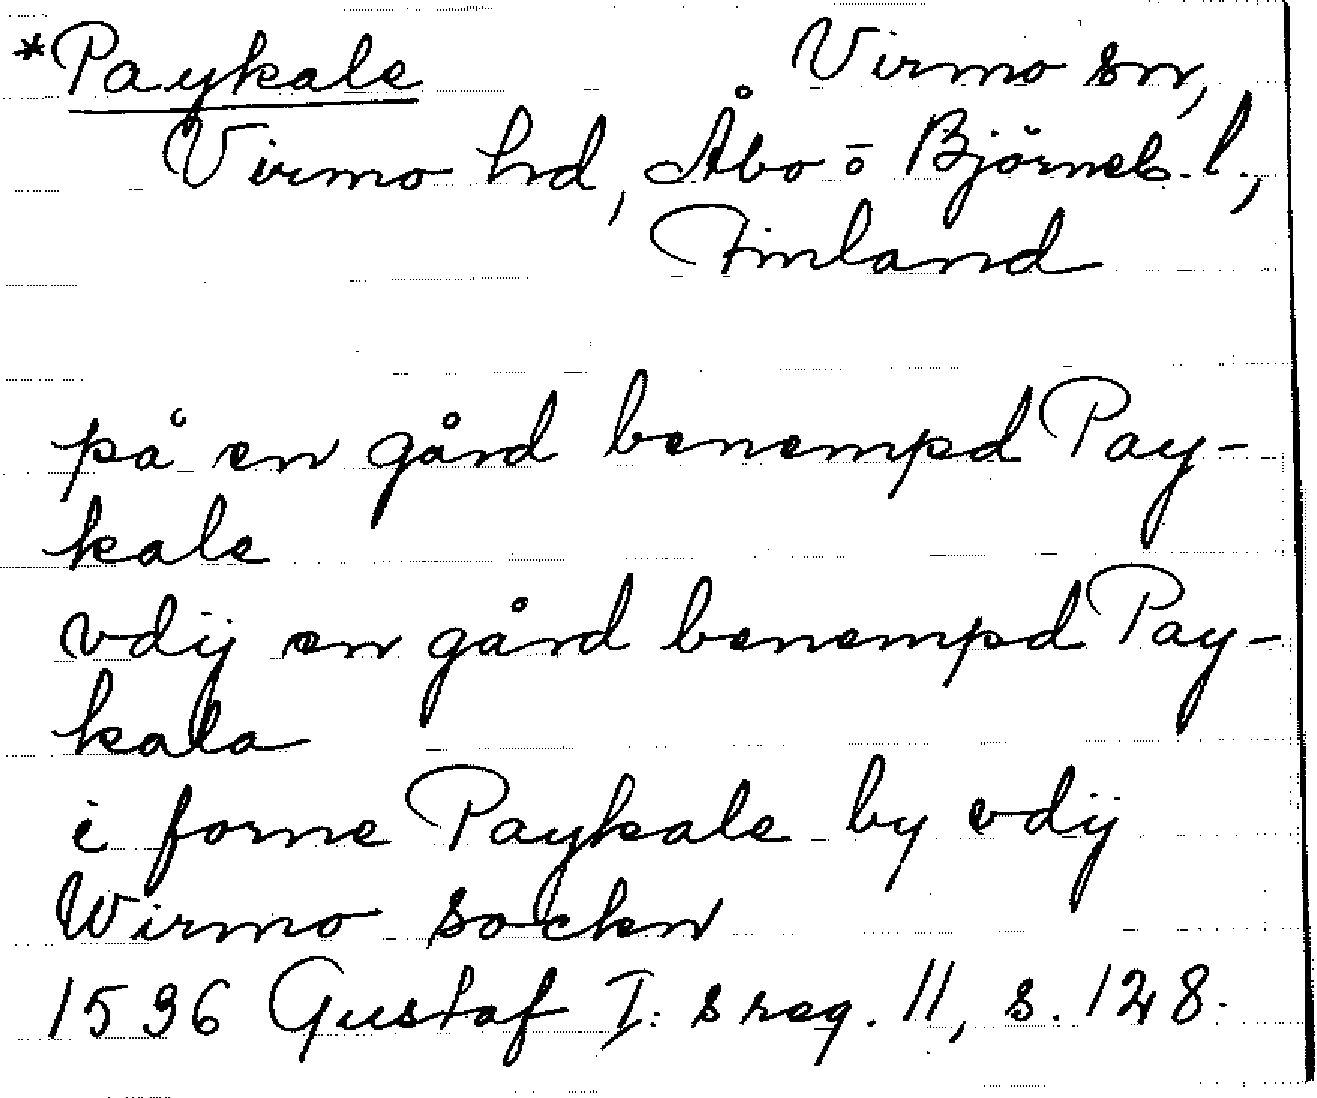 *Paykale Virmo sn,
Virmo hd, Åbo o Björneb. l.,
Finland
på en gård benempd Pay-
kale
vdij en gård benempd Pay-
kala
i forne Paykale by vdij
Wirmo sockn
1536 Gustaf I:s reg. 11, s. 128.